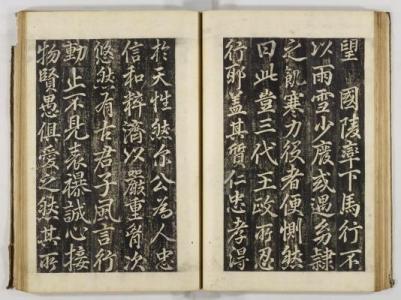 望國陵率下馬行不
以雨雪少廢或遇芻隸
之飢寒力役者便惻然
曰此豈三代王政所忍
行邪蓋其質仁忠孝得
於天性然尔公為人忠
信和粹濟以嚴重胷次
悠然有古君子風言行
動止不見表襮誠心接
物賢愚俱愛之然其所